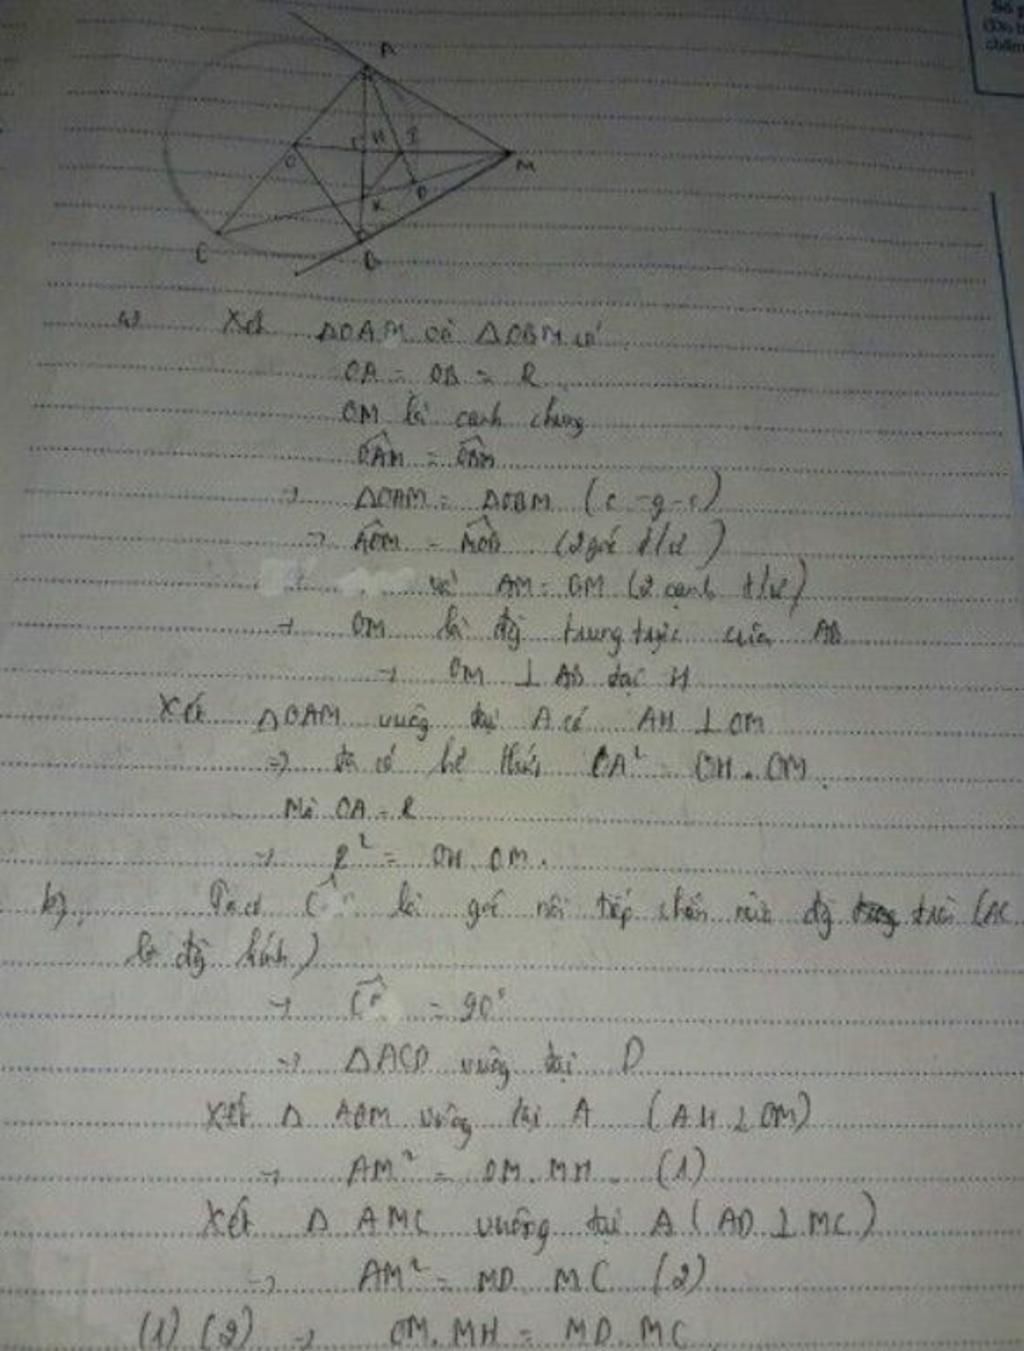 A
O
H
I
M
D
K
C
B
a) Xét ΔOAM và ΔOBM có
OA = OB = R
OM là cạnh chung
OÂM = OB̂M
→ ΔOAM = ΔOBM (c-g-c)
→ AÔM = MÔB (2 góc t/ư)
và AM = BM (2 cạnh t/ư)
→ OM là đg trung trực của AB
→ OM ⊥ AB tại H
Xét ΔOAM vuông tại A có AH ⊥ OM
=> ta có hệ thức OA² = OH . OM
Mà OA = R
→ R² = OH . OM.
b), Ta có là góc nội tiếp chắn nửa đg tròn (AC
là đg kính)
→ = 90°
→ ΔACD vuông tại D
Xét Δ AOM vuông tại A (AH ⊥ OM)
→ AM² = OM . MH . (1)
Xét Δ AMC vuông tại A (AD ⊥ MC)
→ AM² = MD MC (2)
(1) (2) → OM. MH = MD. MC